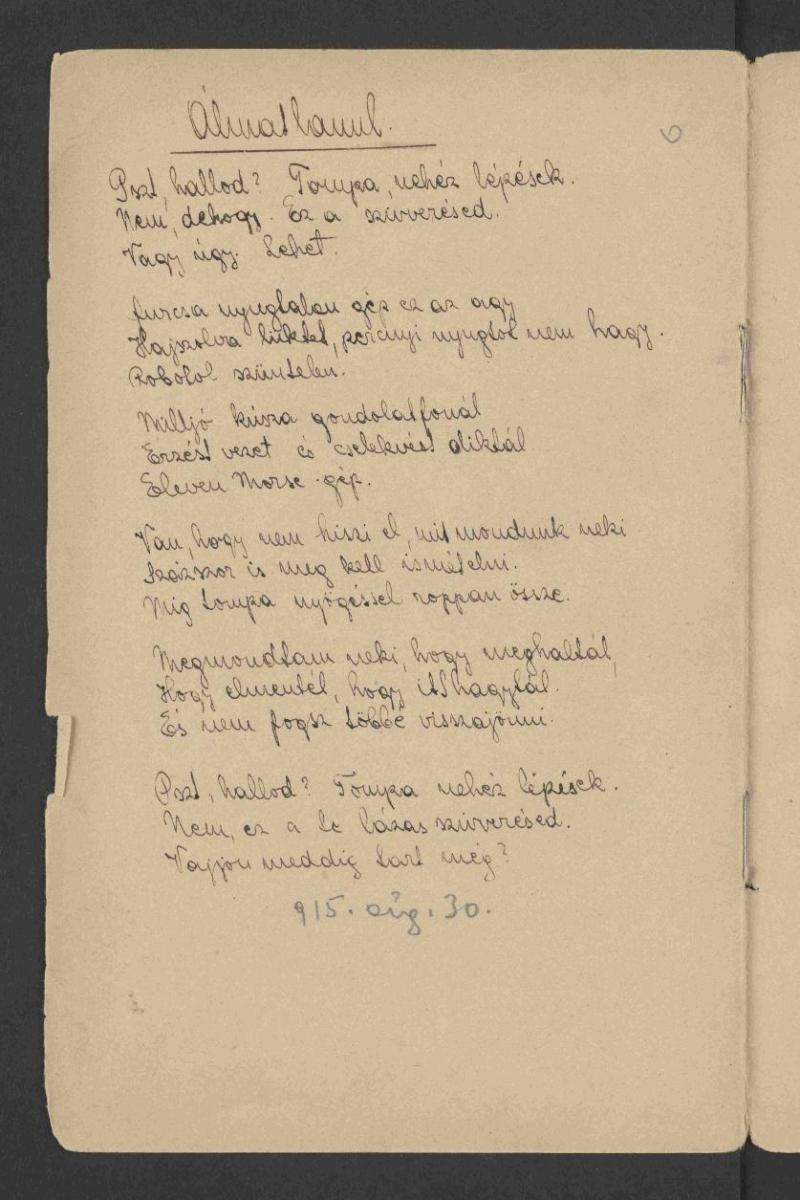 Álmatlanul.
6
Pszt, hallod? Tompa, nehéz lépések.
Nem, dehogy. Ez a szívverésed.
Vagy úgy. Lehet.
furcsa nyugtalan gép ez az agy
Hajszolva lüktet, percnyi nyugtot nem hagy.
Robotol szüntelen.
Milljó kúsza gondolatfonál
Érzést vezet és cselekvést diktál
Eleven Morse-gép.
Van, hogy nem hiszi el, mit mondunk neki
Százszor is meg kell ismételni.
Míg tompa nyögéssel roppan össze.
Megmondtam neki, hogy meghaltál,
Hogy elmentél, hogy itthagytál.
És nem fogsz többé visszajönni.
Pszt, hallod? Tompa nehéz lépések.
Nem, ez a te lázas szívverésed.
Vajjon meddig tart még?
915. aúg. 30.